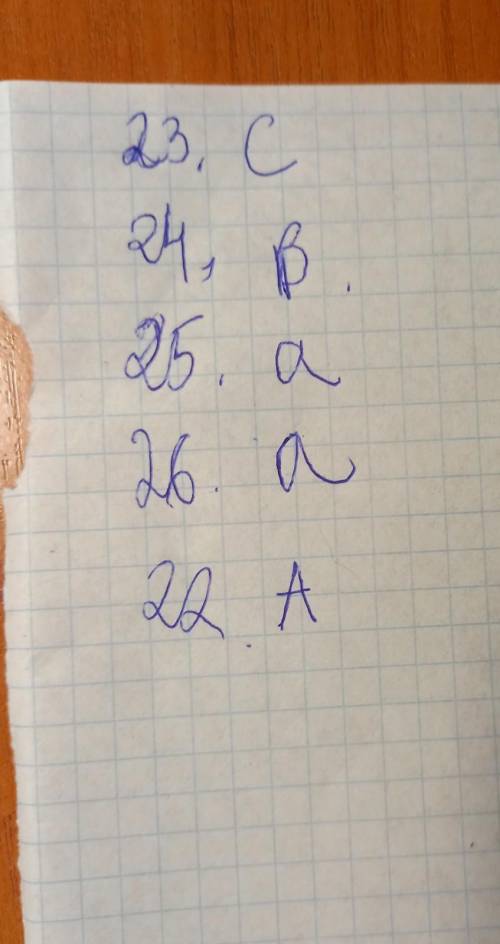 23. C
24, B.
25. a
26. a
22. A